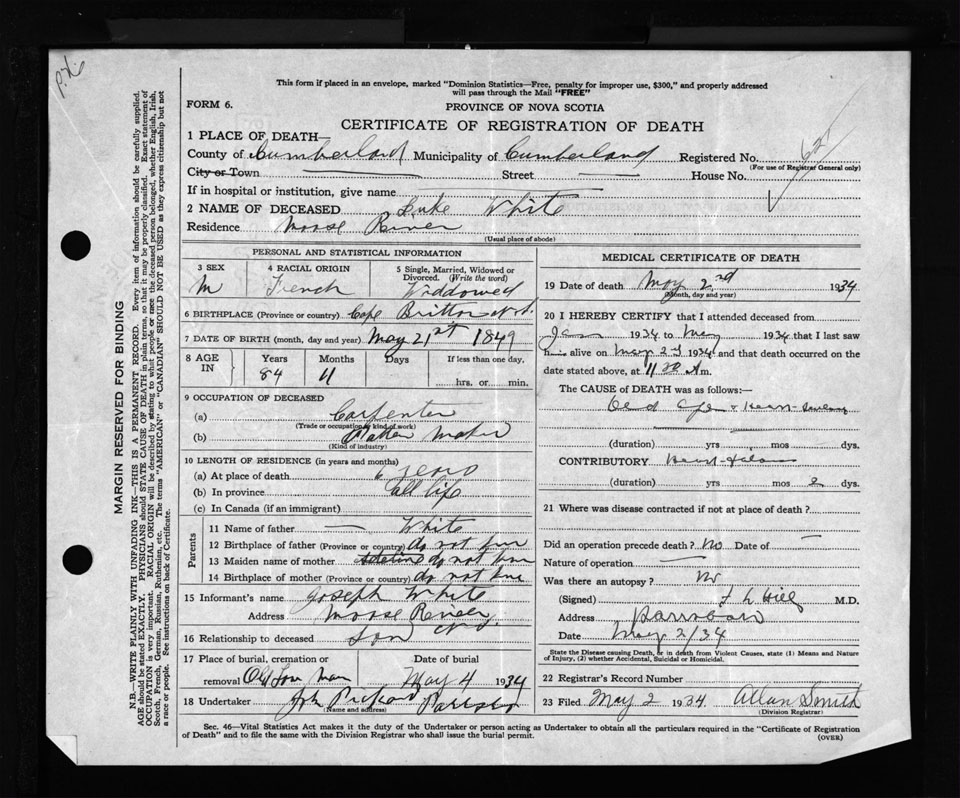 This form if placed in an envelope, marked "Dominion Statistics—Free, penalty for improper use, $300," and properly addressed
will pass through the Mail "FREE"
FORM 6.
PROVINCE OF NOVA SCOTIA
CERTIFICATE OF REGISTRATION OF DEATH
1 PLACE OF DEATH—
County of Cumberland Municipality of Cumberland Registered No.
(For use of Registrar General only)
City or Town Street House No.
If in hospital or institution, give name
2 NAME OF DECEASED Luke White
Residence Moose River
(Usual place of abode)
PERSONAL AND STATISTICAL INFORMATION
3 SEX
M
4 RACIAL ORIGIN
French
5 Single, Married, Widowed or
Divorced. (Write the word)
Widdowed
6 BIRTHPLACE (Province or country) Cape Britton N.S.
7 DATE OF BIRTH (month, day and year) May 21st 1849
8 AGE IN
Years
84
Months
11
Days
If less than one day,
hrs. or min.
9 OCCUPATION OF DECEASED
(a) Carpenter
(Trade or occupation by kind of work)
(b) maker
(Kind of industry)
10 LENGTH OF RESIDENCE (in years and months)
(a) At place of death 6 years
(b) In province all life
(c) In Canada (if an immigrant)
Parents
11 Name of father — White
12 Birthplace of father (Province or country) do not
13 Maiden name of mother do not
14 Birthplace of mother (Province or country) do not
15 Informant's name Joseph White
Address Moose River N.S.
16 Relationship to deceased Son
17 Place of burial, cremation or
removal Old
Date of burial
May 4 1934
18 Undertaker
(Name and address)
MEDICAL CERTIFICATE OF DEATH
19 Date of death May 2nd 1934
(Month, day and year)
20 I HEREBY CERTIFY that I attended deceased from
Jan 1934 to May 1934 that I last saw
h alive on May 2 1934 and that death occurred on
date stated above, at 11 30 A m.
The CAUSE OF DEATH was as follows:—
Old age
(duration) yrs mos dys.
CONTRIBUTORY
(duration) yrs mos 2 dys.
21 Where was disease contracted if not at place of death?
Did an operation precede death? No Date of —
Nature of operation —
Was there an autopsy? No
(Signed) F L Hill M.D.
Address Parrsboro
Date May 2/34
State the Disease causing Death, or in death from Violent Causes, state (1) Means and Nature
of Injury, (2) whether Accidental, Suicidal or Homicidal.
22 Registrar's Record Number
23 Filed May 2 1934 Allan Smith
(Division Registrar)
Sec. 46—Vital Statistics Act makes it the duty of the Undertaker or person acting as Undertaker to obtain all the particulars required in the "Certificate of Registration
of Death" and to file the same with the Division Registrar who shall issue the burial permit.
(OVER)
MARGIN RESERVED FOR BINDING
N.B.—WRITE PLAINLY WITH UNFADING INK—THIS IS A PERMANENT RECORD. Every item of information should be carefully supplied.
AGE should be stated EXACTLY. PHYSICIANS should STATE CAUSE OF DEATH in plain terms, so that it may be properly classified. Exact statement of
OCCUPATION is very important. RACIAL ORIGIN will be described by stating to what people or race the deceased person belonged, whether English, Irish,
Scotch, French, German, Russian, Ruthenian, etc. The terms "AMERICAN" or "CANADIAN" SHOULD NOT BE USED as they express citizenship but not
a race or people. See instructions on back of Certificate.